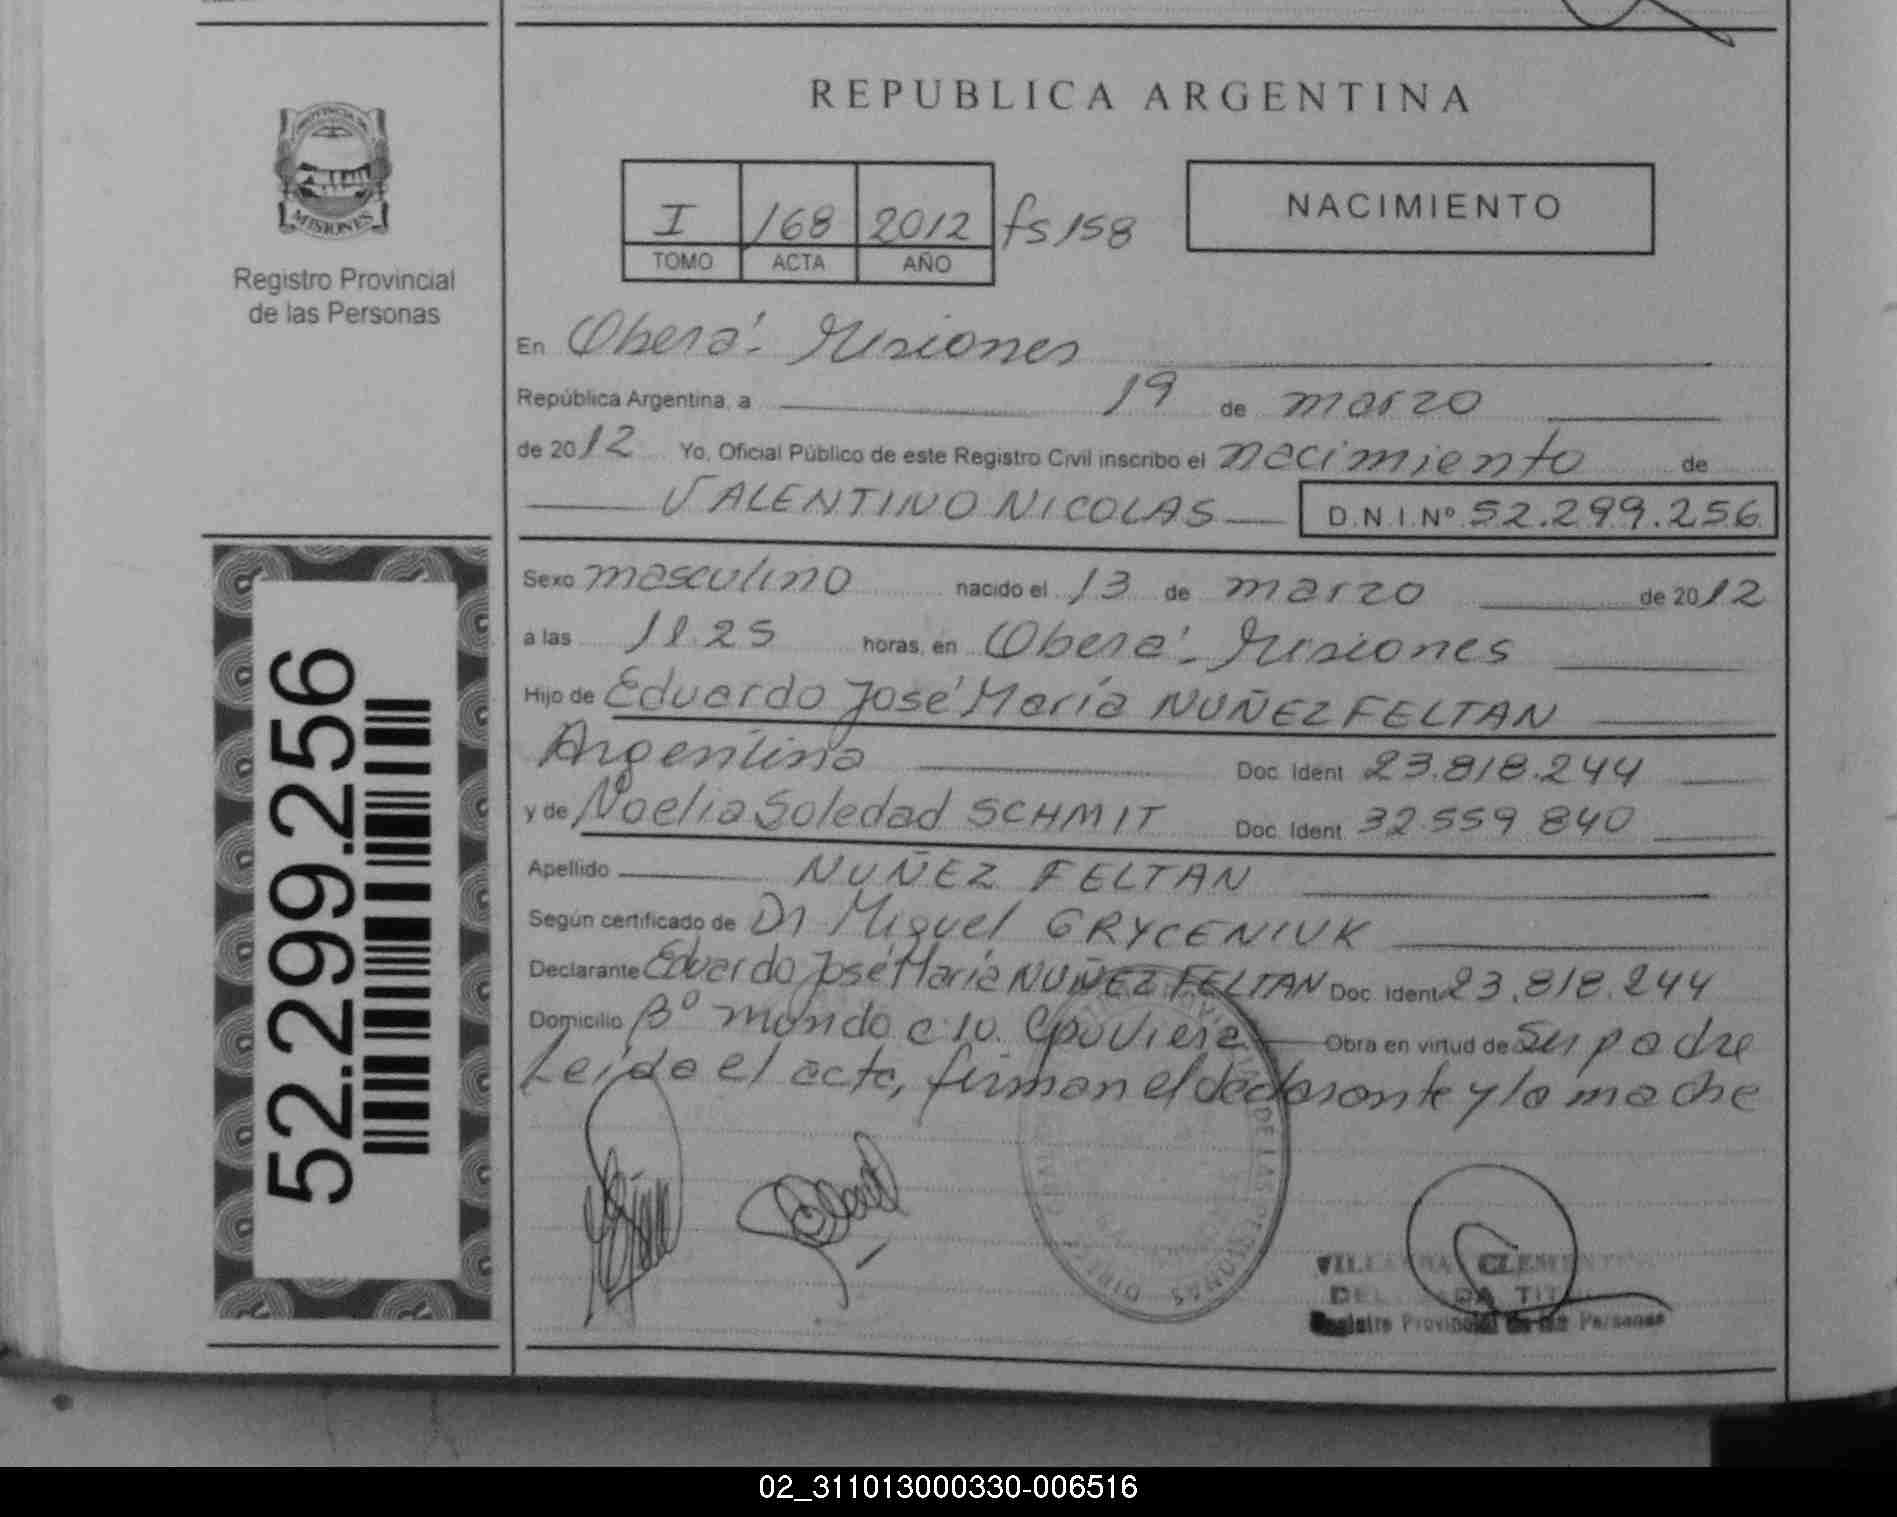 REPUBLICA ARGENTINA
PROVINCIA DE
MISIONES
Registro Provincial
de las Personas
I 168 2012 fs 158
TOMO ACTA AÑO
NACIMIENTO
En Oberá - Misiones
República Argentina, a 19 de marzo
de 2012 Yo, Oficial Público de este Registro Civil inscribo el nacimiento de
VALENTINO NICOLAS D.N.I.Nº 52.299.256
Sexo masculino nacido el 13 de marzo de 2012
a las 11.25 horas, en Oberá - Misiones
Hijo de Eduardo José María NUÑEZ FELTAN
Argentina Doc. Ident 23.818.244
y de Noelia Soledad SCHMIT Doc. Ident. 32.559 840
Apellido NUÑEZ FELTAN
Según certificado de Dr Miguel GRYCENIUK
Declarante Eduardo José María NUÑEZ FELTAN Doc. Ident 23.818.244
Domicilio Bº mondo c 10. Obra en virtud de Su padre
Leída el acta, firman el declarante y la madre
52.299.256
DE LAS PERSONAS
CLEMENTINA
Registro Provincial de las Personas
02_311013000330-006516